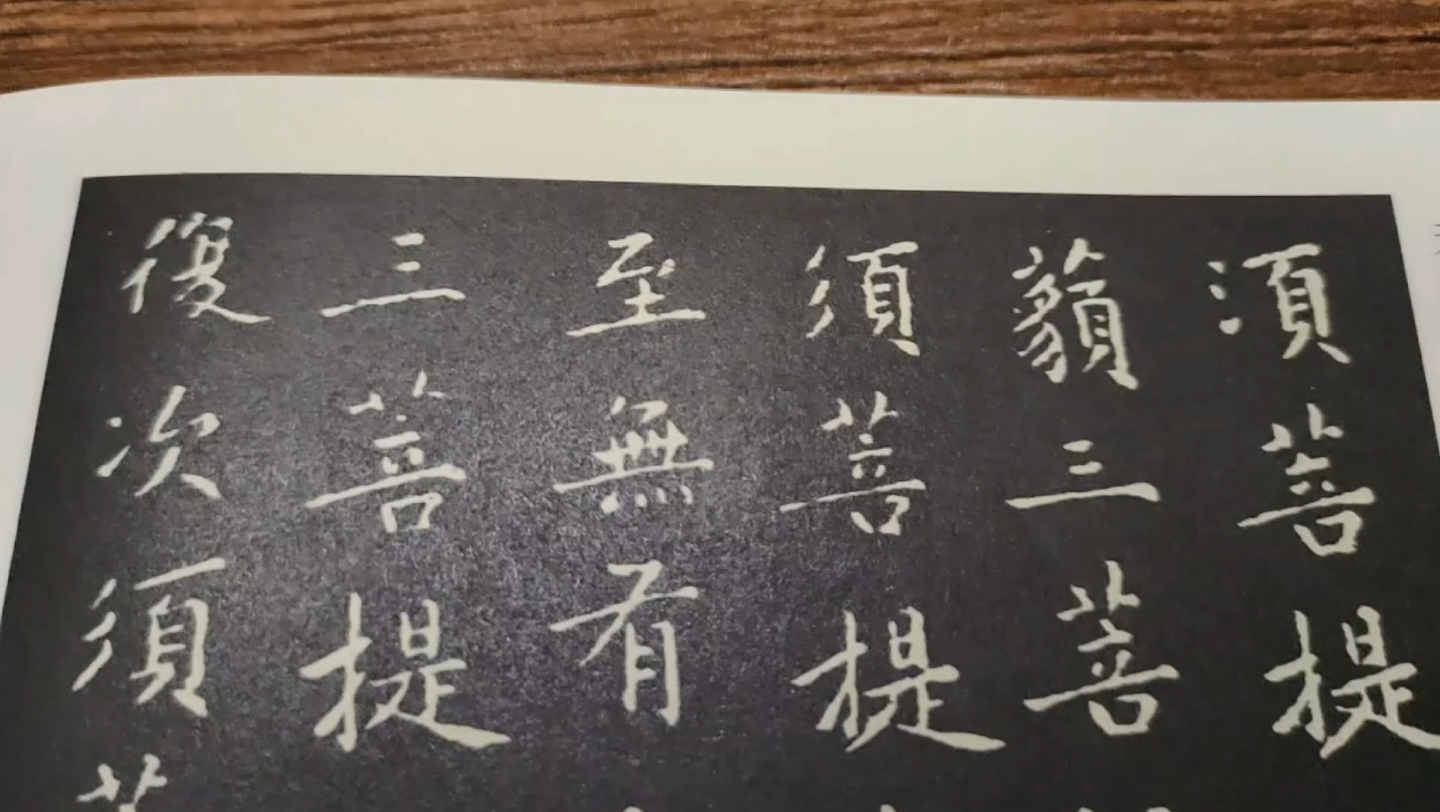 須菩提
藐三菩
須菩提
至無有
三菩提
復次須菩